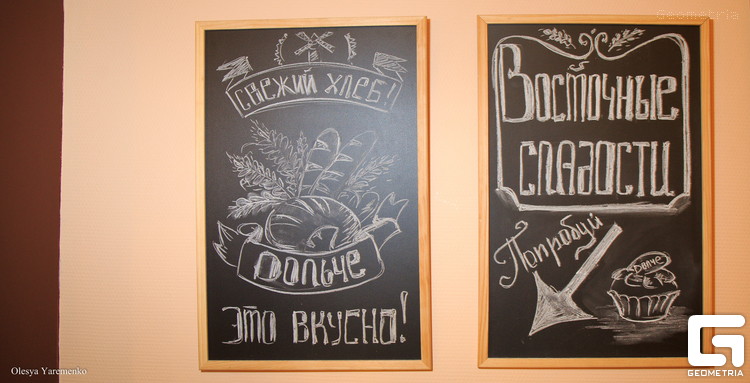 СВЕЖИЙ ХЛЕБ!
ДОЛЬЧЕ
ЭТО ВКУСНО!
Восточные
сладости
Попробуй
Дольче
Geometria
Olesya Yaremenko
GEOMETRIA